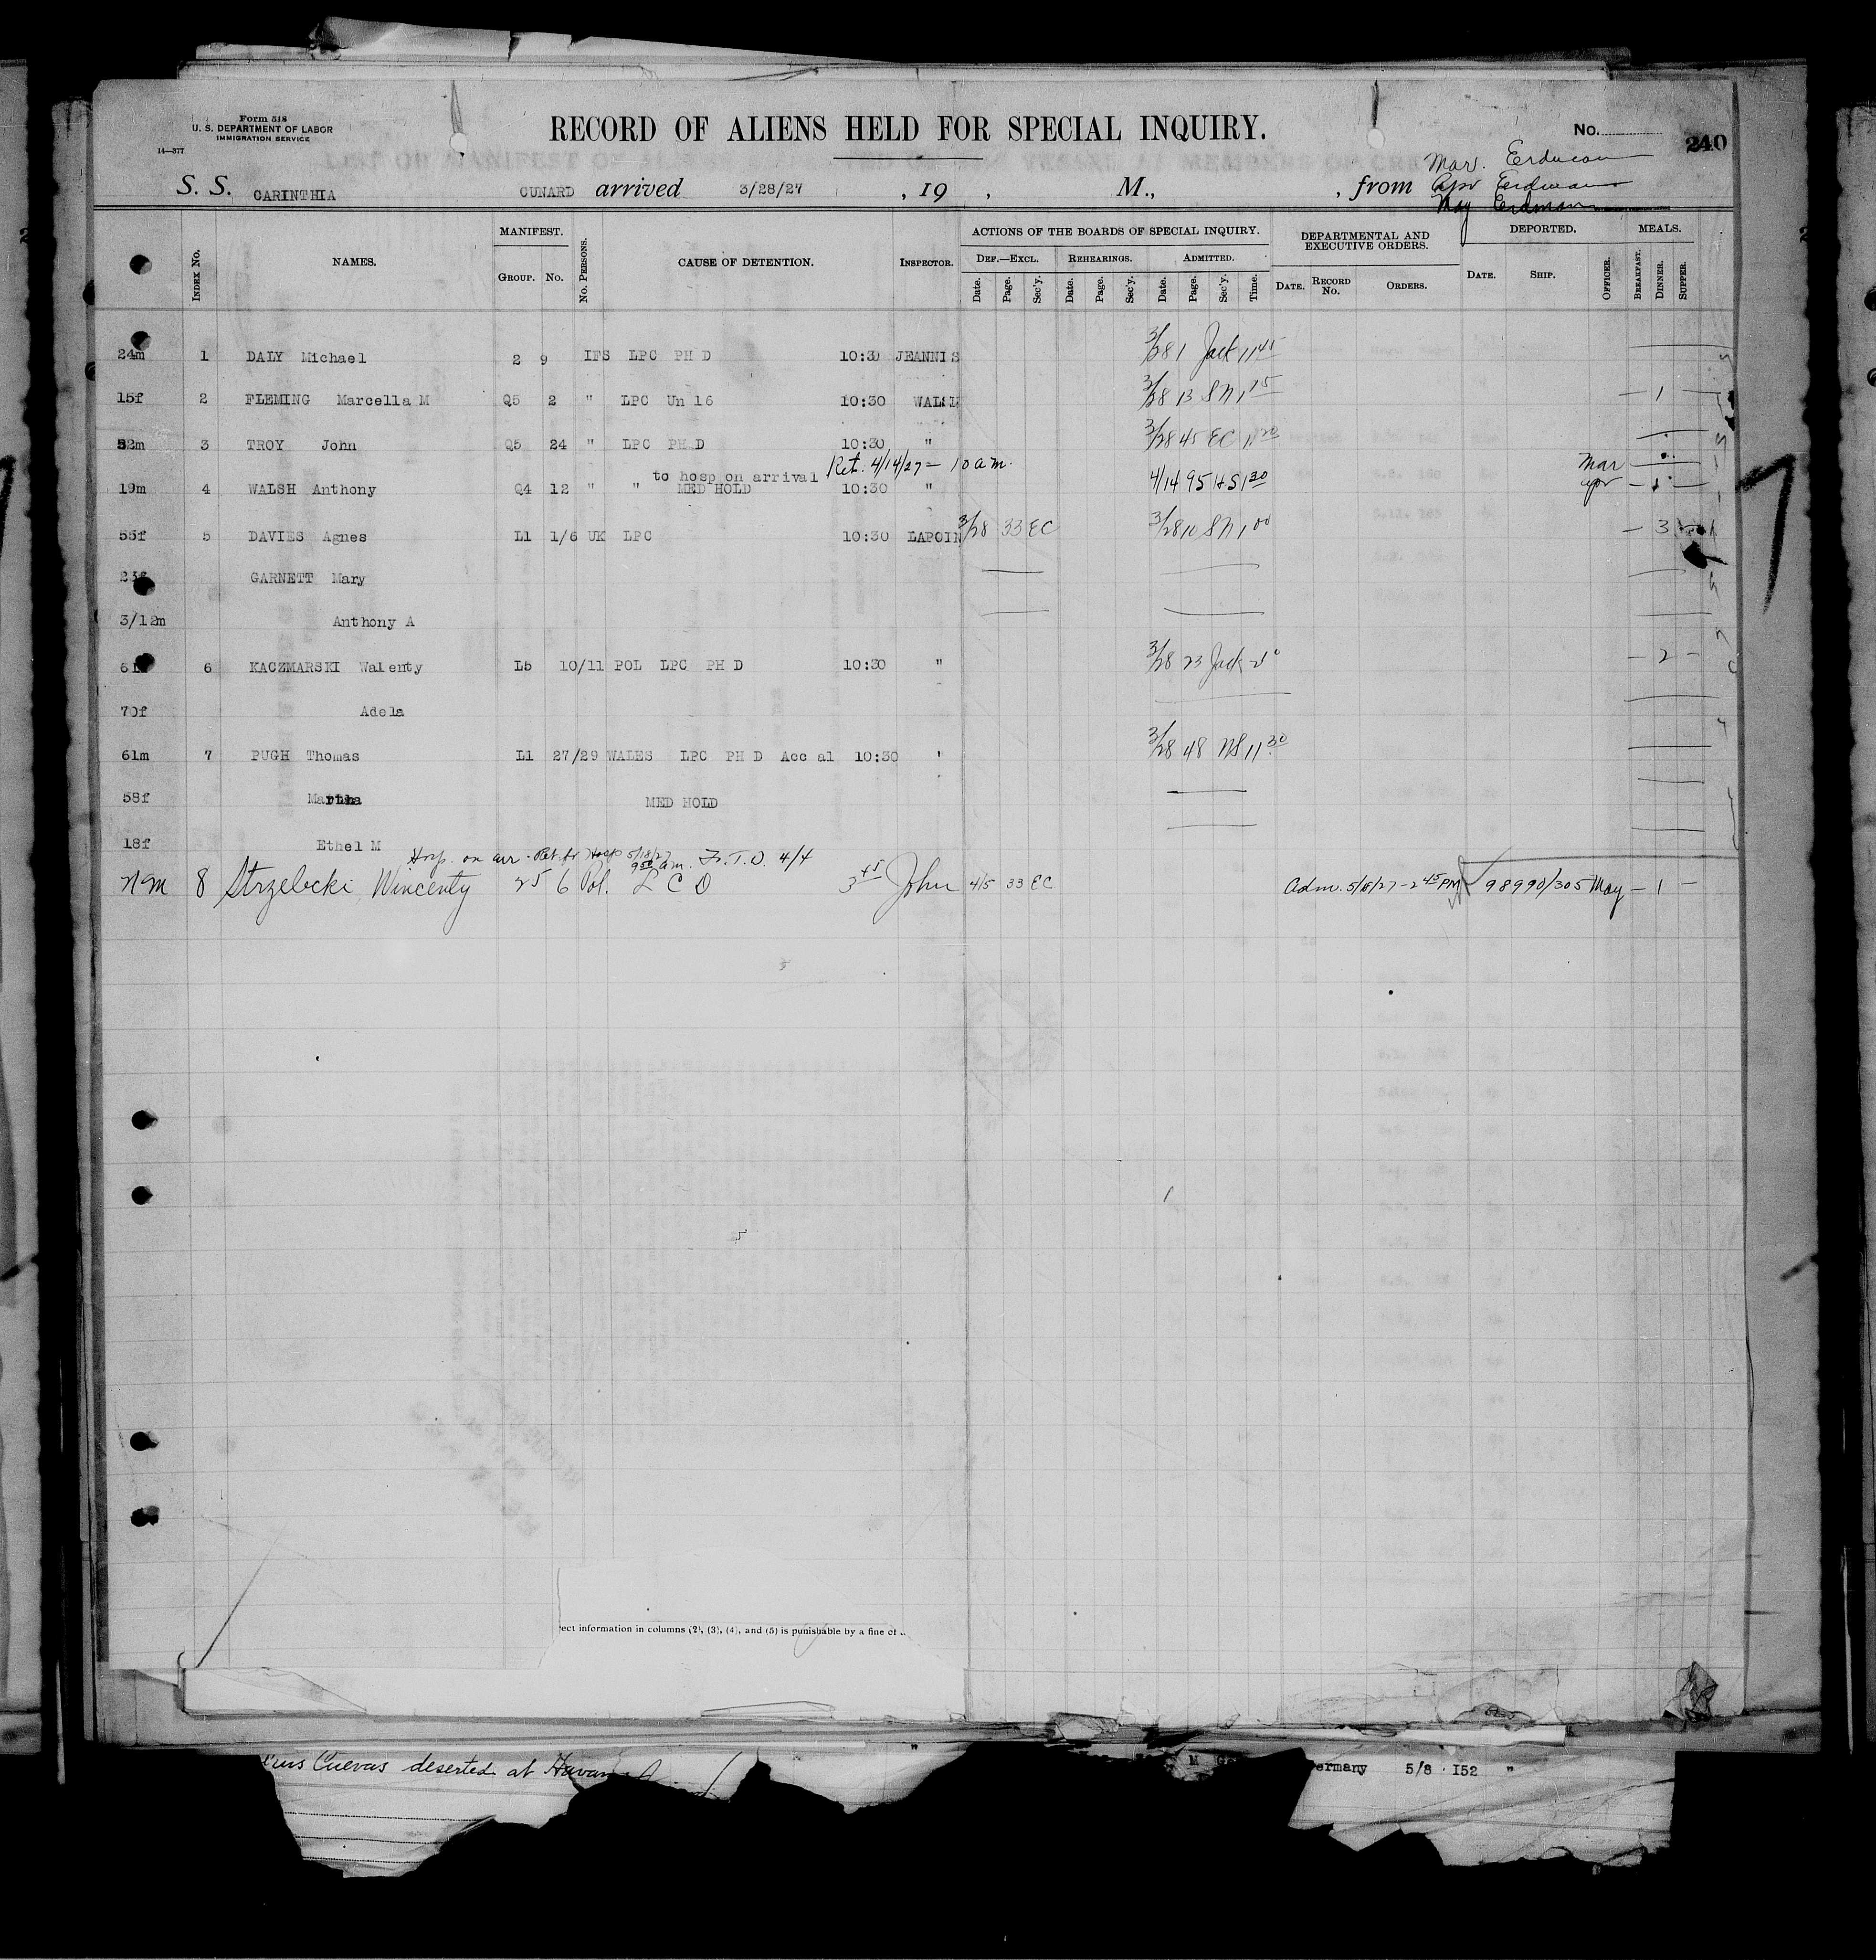 Form 518
U. S. DEPARTMENT OF LABOR
IMMIGRATION SERVICE
14—377
RECORD OF ALIENS HELD FOR SPECIAL INQUIRY.
No. 240
Mar. Erdman
S. S. CARINTHIA CUNARD arrived 3/28/27 , 19 , M., , from Apr Erdman
May Erdman
INDEX No. NAMES. MANIFEST. GROUP. No. No. PERSONS. CAUSE OF DETENTION. INSPECTOR. ACTIONS OF THE BOARDS OF SPECIAL INQUIRY. DEF.—EXCL. REHEARINGS. ADMITTED. DEPARTMENTAL AND EXECUTIVE ORDERS. DEPORTED. MEALS.
Date. Page. Sec'y. Date. Page. Sec'y. Date. Page. Sec'y. Time. DATE. RECORD No. ORDERS. DATE. SHIP. OFFICER. BREAKFAST. DINNER. SUPPER.
24m 1 DALY Michael 2 9 IFS LPC PH D 10:30 JEANNIS 3/28 1 Jack 11 45
15f 2 FLEMING Marcella M Q5 2 " LPC Un 16 10:30 WALSH 3/28 13 SN 1 15 — 1 —
32m 3 TROY John Q5 24 " LPC PH D 10:30 " 3/28 45 EC 11 20
to hosp on arrival Ret. 4/14/27 — 10 am. Mar
19m 4 WALSH Anthony Q4 12 " " MED HOLD 10:30 " 4/14 95 HS 1 30 apr — 1 —
55f 5 DAVIES Agnes L1 1/6 UK LPC 10:30 LAPOIN 3/28 33 EC 3/28 10 SN 1 00 — 3
23f GARNETT Mary
3/12m Anthony A
61 6 KACZMARSKI Walenty L5 10/11 POL LPC PH D 10:30 " 3/28 23 Jack — 2 —
70f Adela
61m 7 PUGH Thomas L1 27/29 WALES LPC PH D Acc al 10:30 " 3/28 48 NS 11 30
58f Martha MED HOLD
18f Ethel M
Hosp. on arr. Ret. fr Hosp 5/18/27 9 50 am. 4/4
8 Strzelecki Wincenty 25 6 Pol. L C D 3 45 John 4/5 33 EC Adm. 5/18/27 - 2 45 PM 98990/305 May — 1 —
rect information in columns (2), (3), (4), and (5) is punishable by a fine of
Cuevas deserted at Havana
ermany 5/8 152 "